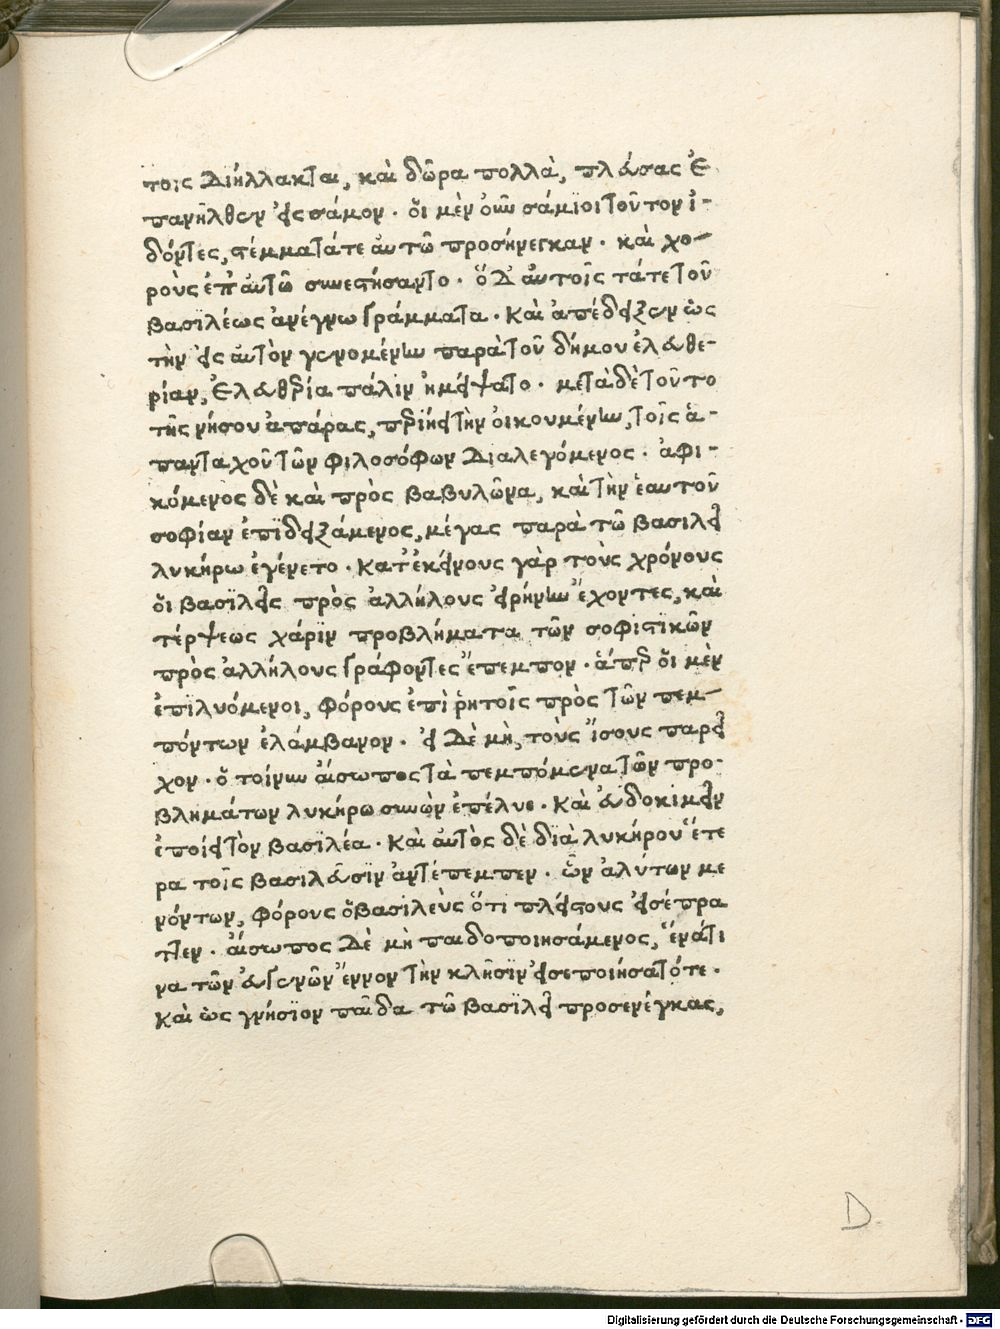 τοις διήλλακται, καὶ δῶρα πολλὰ, πλεύσας ἐ
πανῆλθεν εἰς σάμον· ὅι μὲν ὀῦν σάμιοι τοῦτον ἰ-
δόντες, στέμματά τε ἀυτῶ προσήνεγκαν· καὶ χο-
ροὺς ἐπ' ἀυτῶ συνεστήσαντο· ὅ δ' ἀυτοῖς τά τε τοῦ
βασϊλέως ἀνέγνω γράμματα· καὶ ἀπέδειξεν ὡς
τὴν εἰς ἀυτὸν γενομένην παρὰ τοῦ δήμου ἐλευθε-
ρίαν, ἐλευθερία πάλιν ἠμείψατο· μετὰ δὲ τοῦτο
τῆς νήσου ἀπάρας, περιήει τὴν ὀικουμένην, τοῖς ἁ-
πανταχοῦ τῶν φιλοσόφων διαλεγόμενος· ἀφι-
κόμενος δὲ καὶ πρὸς βαβυλῶνα, καὶ τὴν ἑαυτοῦ
σοφίαν ἐπϊδειξάμενος, μέγας παρὰ τῶ βασιλεῖ
λυκήρω ἐγένετο· κατ' ἐκείνους γὰρ τοὺς χρόνους
ὅι βασϊλεῖς πρὸς ἀλλήλους εἰρήνην ἔχοντες, καὶ
τέρψεως χάρϊν προβλήματα τῶν σοφιστικῶν
πρὸς ἀλλήλους γράφοντες ἔπεμπον· ἅπερ ὅι μὲν
ἐπϊλυόμενοι, φόρους ἐπὶ ῥητοῖς πρὸς τῶν πεμ-
πόντων ἐλάμβανον· εἰ δὲ μὴ, τοὺς ἴσους παρεῖ
χον· ὅ τοίνυν ἄισωπος τὰ πεμπόμενα τῶν προ-
βλημάτων λυκήρω συνὼν ἐπέλυε· καὶ ἐυδοκιμεῖν
ἐποίει τὸν βασιλέα· καὶ ἀυτὸς δὲ διὰ λυκήρου ἕτε
ρα τοῖς βασιλεῦσϊν ἀντέπεμπεν· ὧν ἀλύτων με
νόντων, φόρους ὅ βασιλεὺς ὅτι πλείστους εἰσέπρα
ττεν· ἄισωπος δὲ μὴ παιδοποιησάμενος, ἕνά τι
να τῶν ἐυγενῶν ἔννον τὴν κλῆσϊν εἰσεποιήσατό τε·
καὶ ὡς γνήσϊον παῖδα τῶ βασϊλεῖ προσενέγκας,
D.
Digitalisierung gefördert durch die Deutsche Forschungsgemeinschaft - DFG